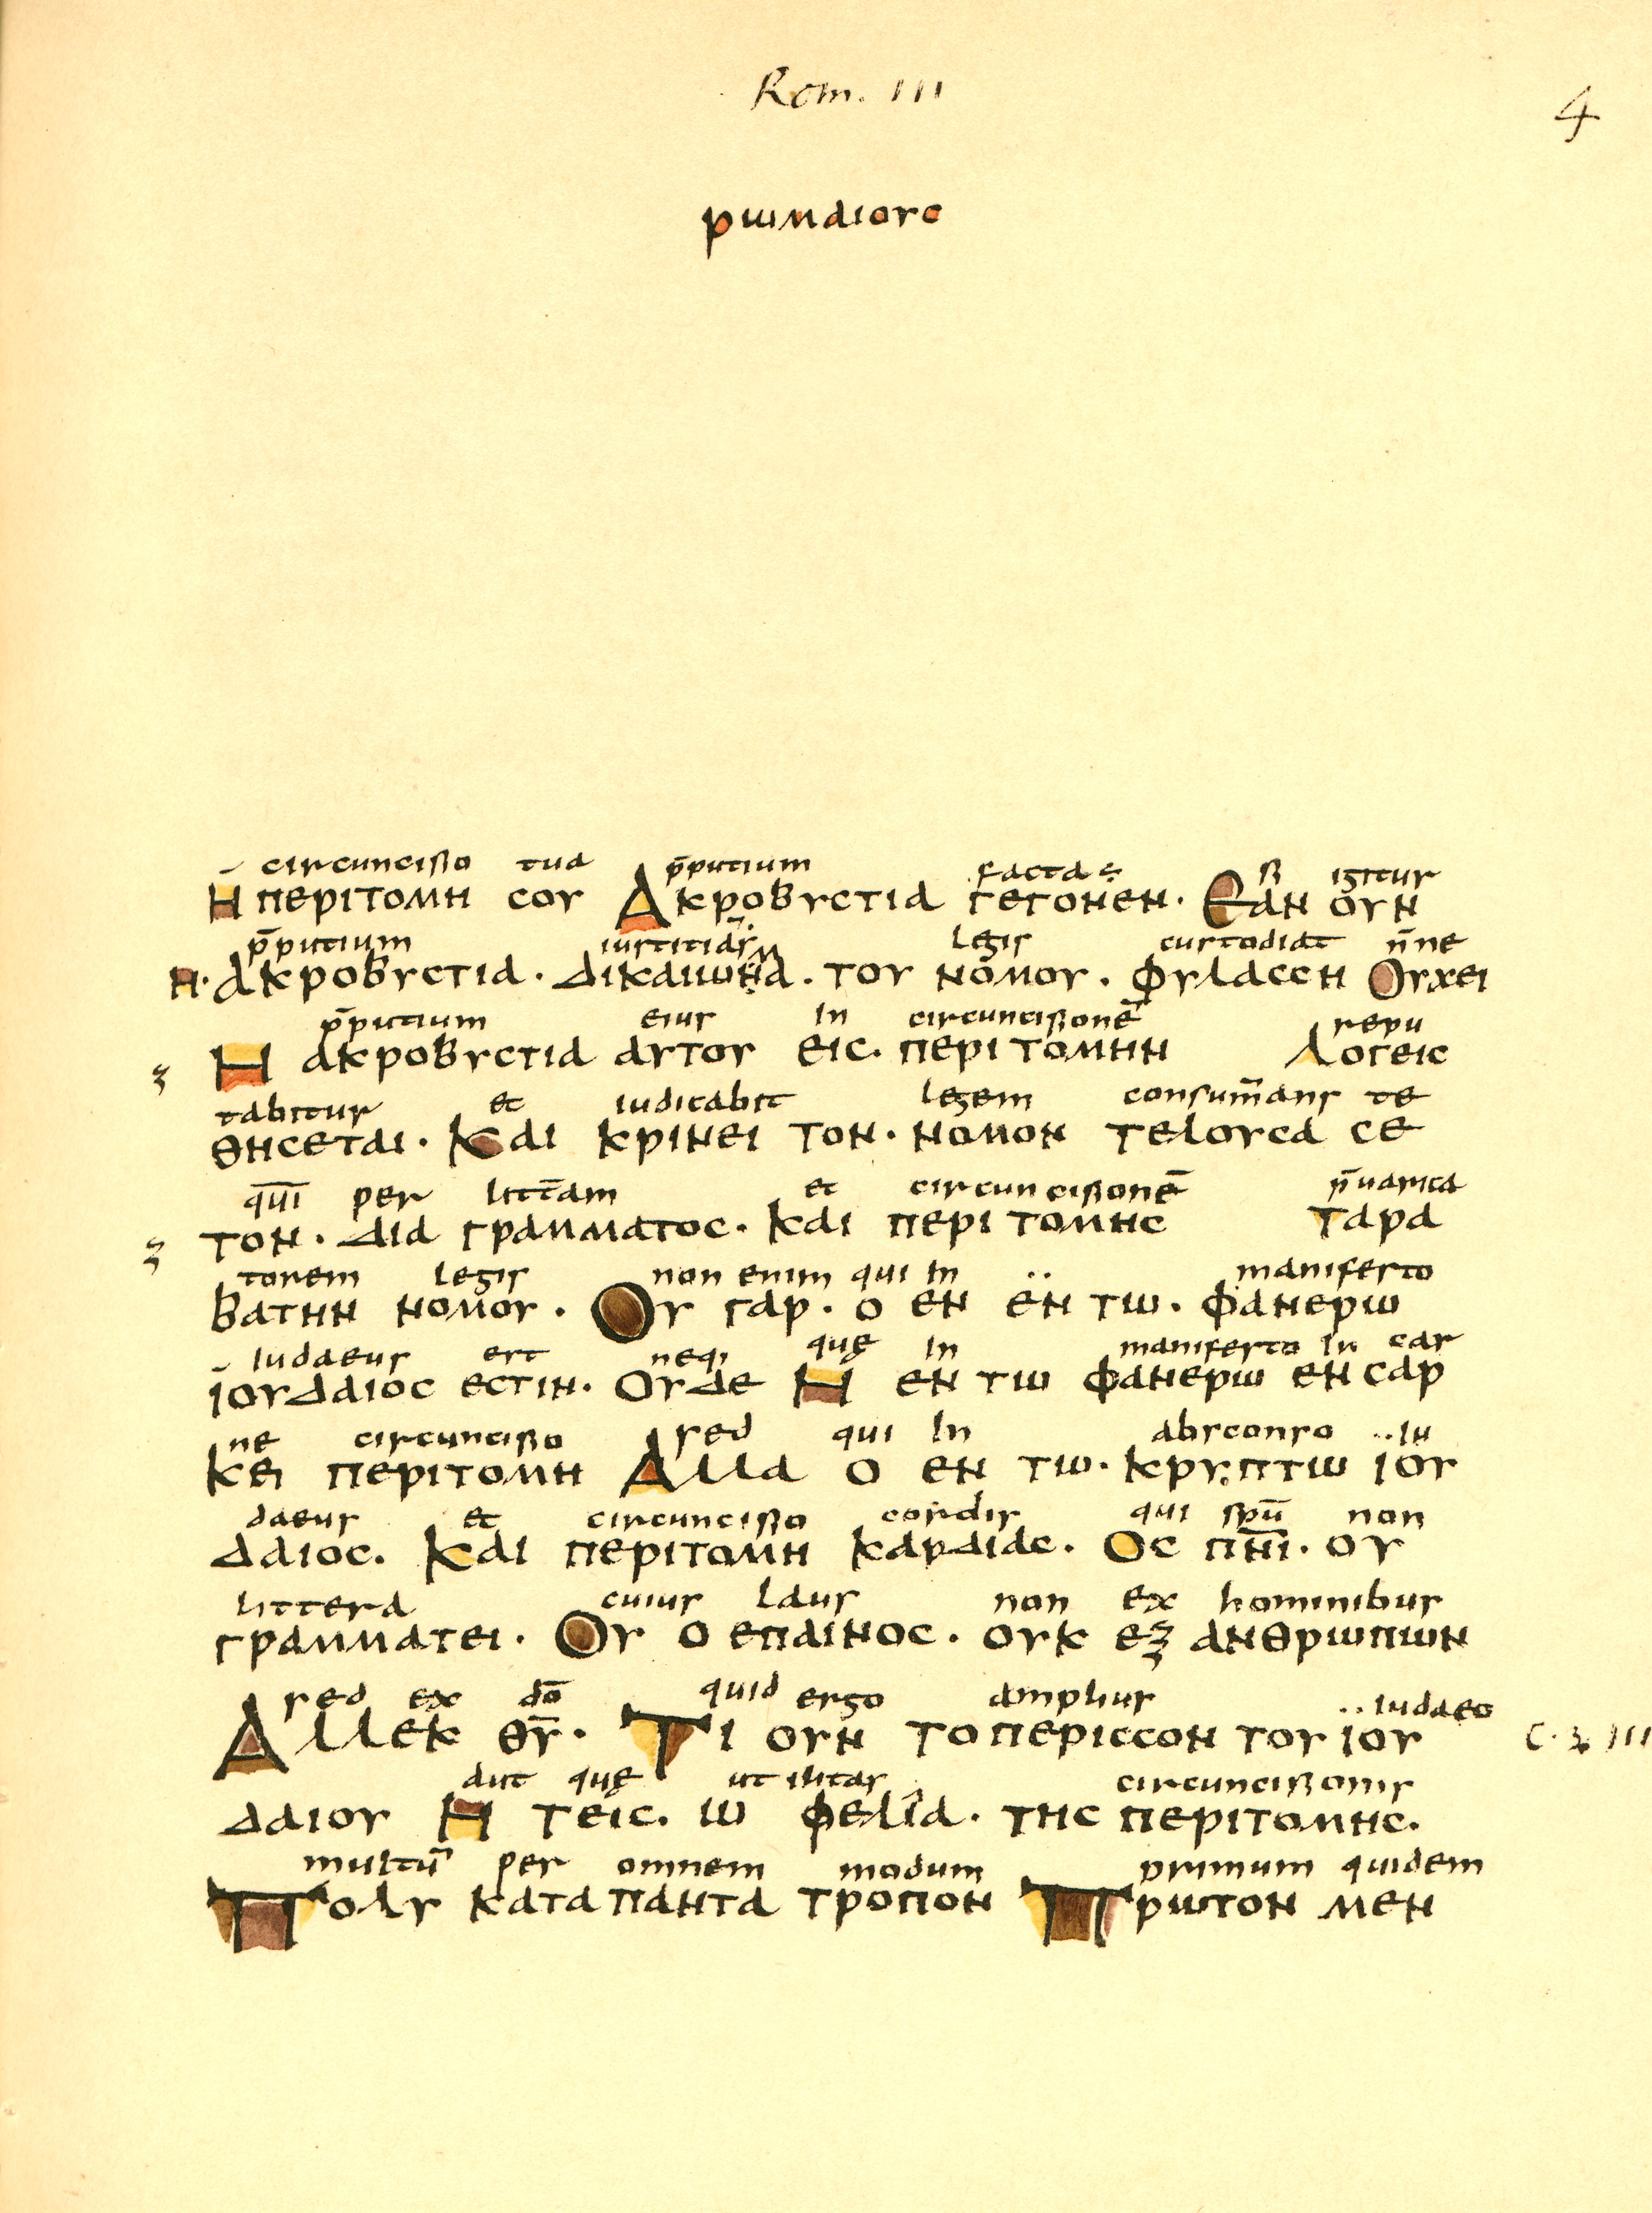 Rom. III
4
ρωμαιουσ
circunciſſio tua p̄putium facta ÷ ſi igitur
Η περιτομη σου Ακροβυστια γεγονεν · Εαν ουν
p̄putium iustitias legis custodiat n̄ne
Η · ακροβυστια · δικαιωμα · του νομου · φυλασση Ουχει
p̄putium eius in circunciſſionē repu
Η ακροβυστια αυτου εις · περιτομην Λογεισ
tabitur et iudicabit legem consum̄ans te
θησεται · Και κρινει τον · νομον τελουσα σε
qūi per litt̄am et circunciſſionē p̄uarica
τον · δια γραμματος · Και περιτομης Ταρα
torem legis non enim qui in ·· manifesto
βατην νομου · Ου γαρ · ο εν εν τω · φανερω
iudaeus est neq; quę in manifesto in car
ιουδαιος εστιν · Ουδε Η εν τω φανερω εν σαρ
ne circunciſſio sed qui in absconso ·· iu
κει περιτομη Αλλα ο εν τω · κρυπτω ιου
daeus et circunciſſio cordis qui sp̄u non
δαιος · Και περιτομη καρδιας · Ος πν̄ι · ου
littera cuius laus non ex hominibus
γραμματει · Ου ο επαινος · ουκ εξ ανθρωπων
sed ex dō quid ergo amplius ·· iudaeo
Αλλεκ θῡ · Τι ουν το περισσον του ιου
C. 3 III
aut quę utilitas circunciſſionis
δαιου Η τεις · ω φελια · της περιτομης ·
multū per omnem modum primum quidem
Πολυ κατα παντα τροπον Πρωτον μεν